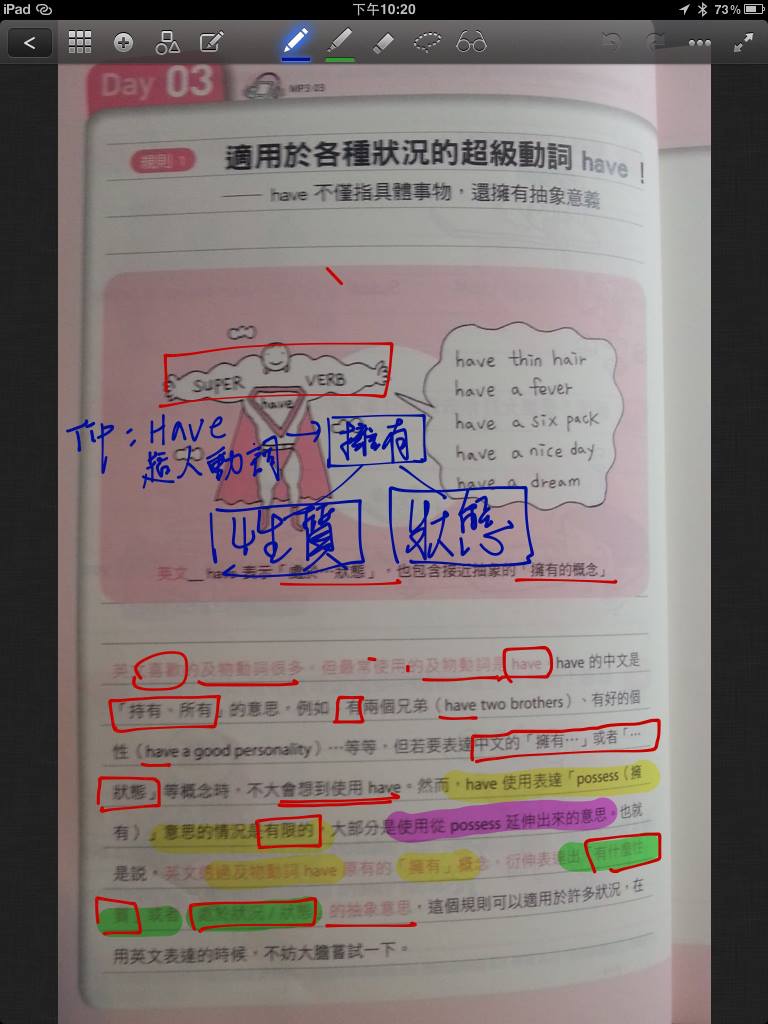 iPad 下午10:20 73%
Day 03
MP3 03
規則 1 適用於各種狀況的超級動詞 have！
—— have 不僅指具體事物，還擁有抽象意義
SUPER VERB
have
have thin hair
have a fever
have a six pack
have a nice day
have a dream
Tip : Have → 擁有
超人動詞
性質 狀態
英文 have 表示「處於…狀態」，也包含接近抽象的「擁有的概念」
英文喜歡的及物動詞很多，但最常使用的及物動詞是 have。have 的中文是
「持有、所有」的意思，例如：有兩個兄弟（have two brothers）、有好的個
性（have a good personality）…等等，但若要表達中文的「擁有…」或者「…
狀態」等概念時，不大會想到使用 have。然而，have 使用表達「possess（擁
有）」意思的情況是有限的，大部分是使用從 possess 延伸出來的意思。也就
是說，英文透過及物動詞 have 原有的「擁有」概念，衍伸表達出「有什麼性
質」或者「處於狀況／狀態」的抽象意思，這個規則可以適用於許多狀況，在
用英文表達的時候，不妨大膽嘗試一下。